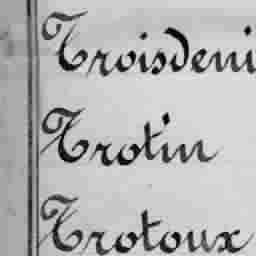 Troisdeni
Trotin
Trotoux